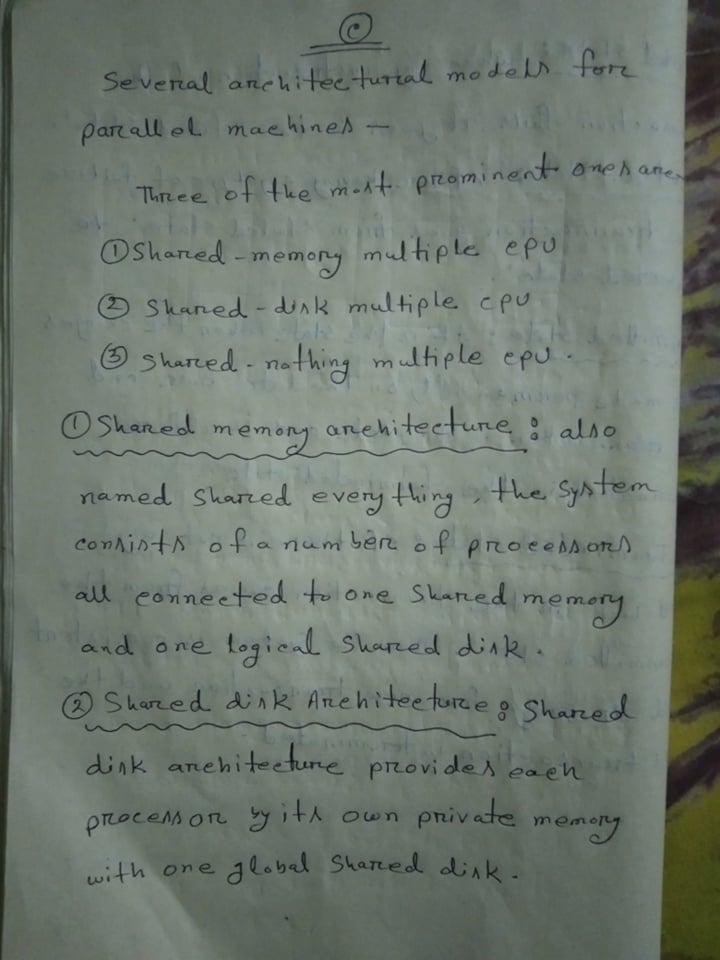 ©
Several architectural models for
parallel machines —
Three of the most prominent ones are
① Shared-memory multiple cpu
② Shared-disk multiple cpu
③ Shared-nothing multiple cpu.
① Shared memory architecture: also
named shared everything, the system
consists of a number of processors
all connected to one shared memory
and one logical shared disk.
② Shared disk Architecture: Shared
disk architecture provides each
processor by its own private memory
with one global shared disk.